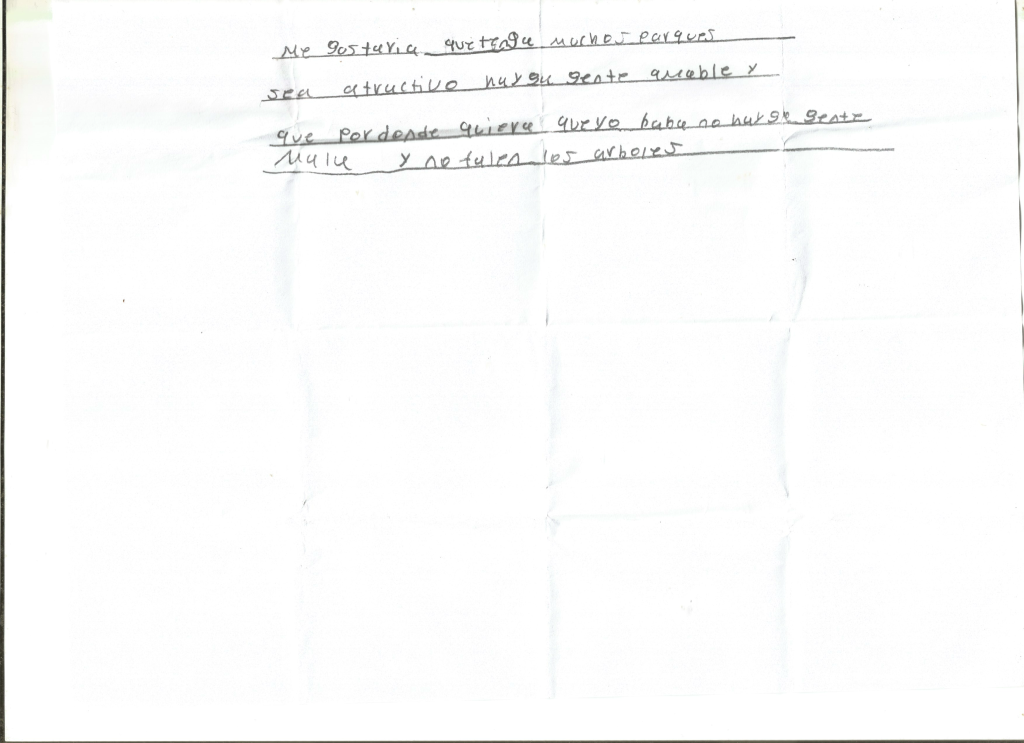 Me gostaria que tenga muchos parques
sea atractivo hayga gente amable y
que por donde quiera que yo baba no hayga gente
mala y no talen los arboles